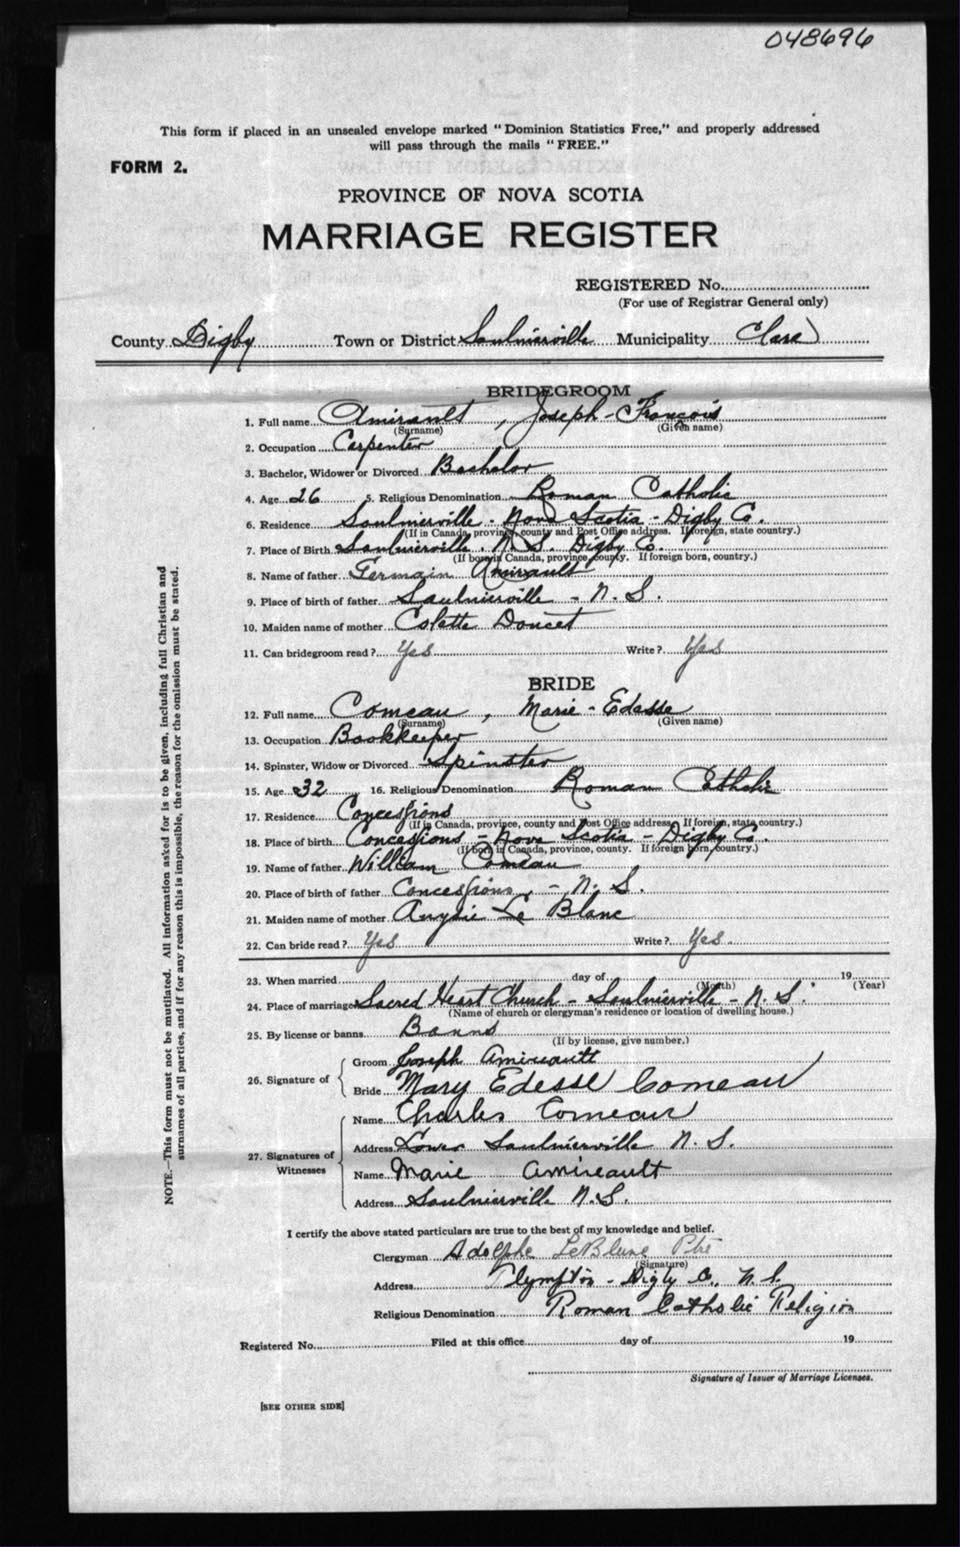 048696
This form if placed in an unsealed envelope marked "Dominion Statistics Free," and properly addressed
will pass through the mails "FREE."
FORM 2.
PROVINCE OF NOVA SCOTIA
MARRIAGE REGISTER
REGISTERED No.
(For use of Registrar General only)
County Digby Town or District Saulnierville Municipality Clare
BRIDEGROOM
1. Full name Amirault, Joseph-François
(Surname) (Given name)
2. Occupation Carpenter
3. Bachelor, Widower or Divorced Bachelor
4. Age 26 5. Religious Denomination Roman Catholic
6. Residence Saulnierville - Nova Scotia - Digby Co.
(If in Canada, province, county and Post Office address. If foreign, state country.)
7. Place of Birth Saulnierville. N.S. Digby Co.
(If born in Canada, province, county. If foreign born, country.)
8. Name of father Germain Amirault
9. Place of birth of father Saulnierville - N.S.
10. Maiden name of mother Colette Doucet
11. Can bridegroom read? Yes Write? Yes
BRIDE
12. Full name Comeau, Marie-Edesse
(Surname) (Given name)
13. Occupation Bookkeeper
14. Spinster, Widow or Divorced Spinster
15. Age 32 16. Religious Denomination Roman Catholic
17. Residence Concessions
(If in Canada, province, county and Post Office address. If foreign, state country.)
18. Place of birth Concessions - Nova Scotia - Digby Co.
(If born in Canada, province, county. If foreign born, country.)
19. Name of father William Comeau
20. Place of birth of father Concessions, - N.S.
21. Maiden name of mother Anysie Le Blanc
22. Can bride read? Yes Write? Yes.
23. When married day of 19
(Month) (Year)
24. Place of marriage Sacred Heart Church - Saulnierville - N.S.
(Name of church or clergyman's residence or location of dwelling house.)
25. By license or banns Banns
(If by license, give number.)
26. Signature of
Groom Joseph Amireault
Bride Mary Edesse Comeau
27. Signatures of Witnesses
Name Charles Comeau
Address Lower Saulnierville N.S.
Name Marie Amireault
Address Saulnierville N.S.
I certify the above stated particulars are true to the best of my knowledge and belief.
Clergyman Adolphe LeBlanc Ptre
(Signature)
Address Plympton - Digby Co., N.S.
Religious Denomination Roman Catholic Religion
Registered No. Filed at this office day of 19
Signature of Issuer of Marriage Licenses.
[SEE OTHER SIDE]
NOTE.—This form must not be mutilated. All information asked for is to be given, including full Christian and
surnames of all parties, and if for any reason this is impossible, the reason for the omission must be stated.